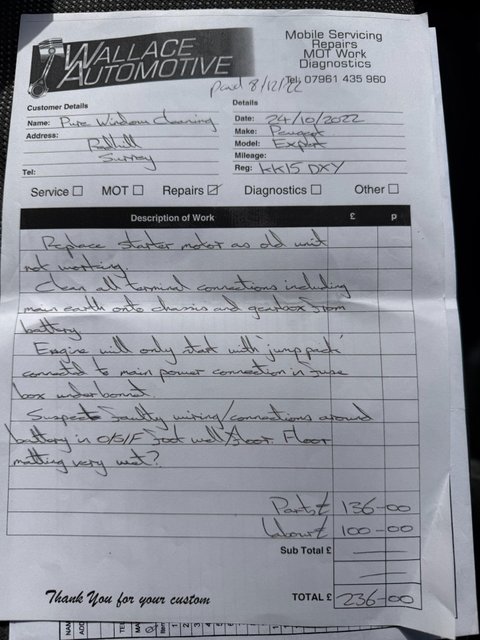 WALLACE
AUTOMOTIVE
Mobile Servicing
Repairs
MOT Work
Diagnostics
Tel: 07961 435 960
Paid 8/12/22
Customer Details
Name: Pure Window Cleaning
Address: Redhill
Surrey
Tel:
Details
Date: 24/10/2022
Make: Peugeot
Model: Expert
Mileage:
Reg: KK15 DXY
Service MOT Repairs Diagnostics Other
Description of Work £ p
Replace starter motor as old unit
not working.
Clean all terminal connections including
main earth onto chassis and gearbox from
battery
Engine will only start with 'jump pack'
connected to main power connection in fuse
box under bonnet.
Suspect faulty wiring/connections around
battery in O/S/F foot well/floor Floor
matting very wet?
Parts £ 136-00
Labour £ 100-00
Sub Total £
TOTAL £ 236-00
Thank You for your custom